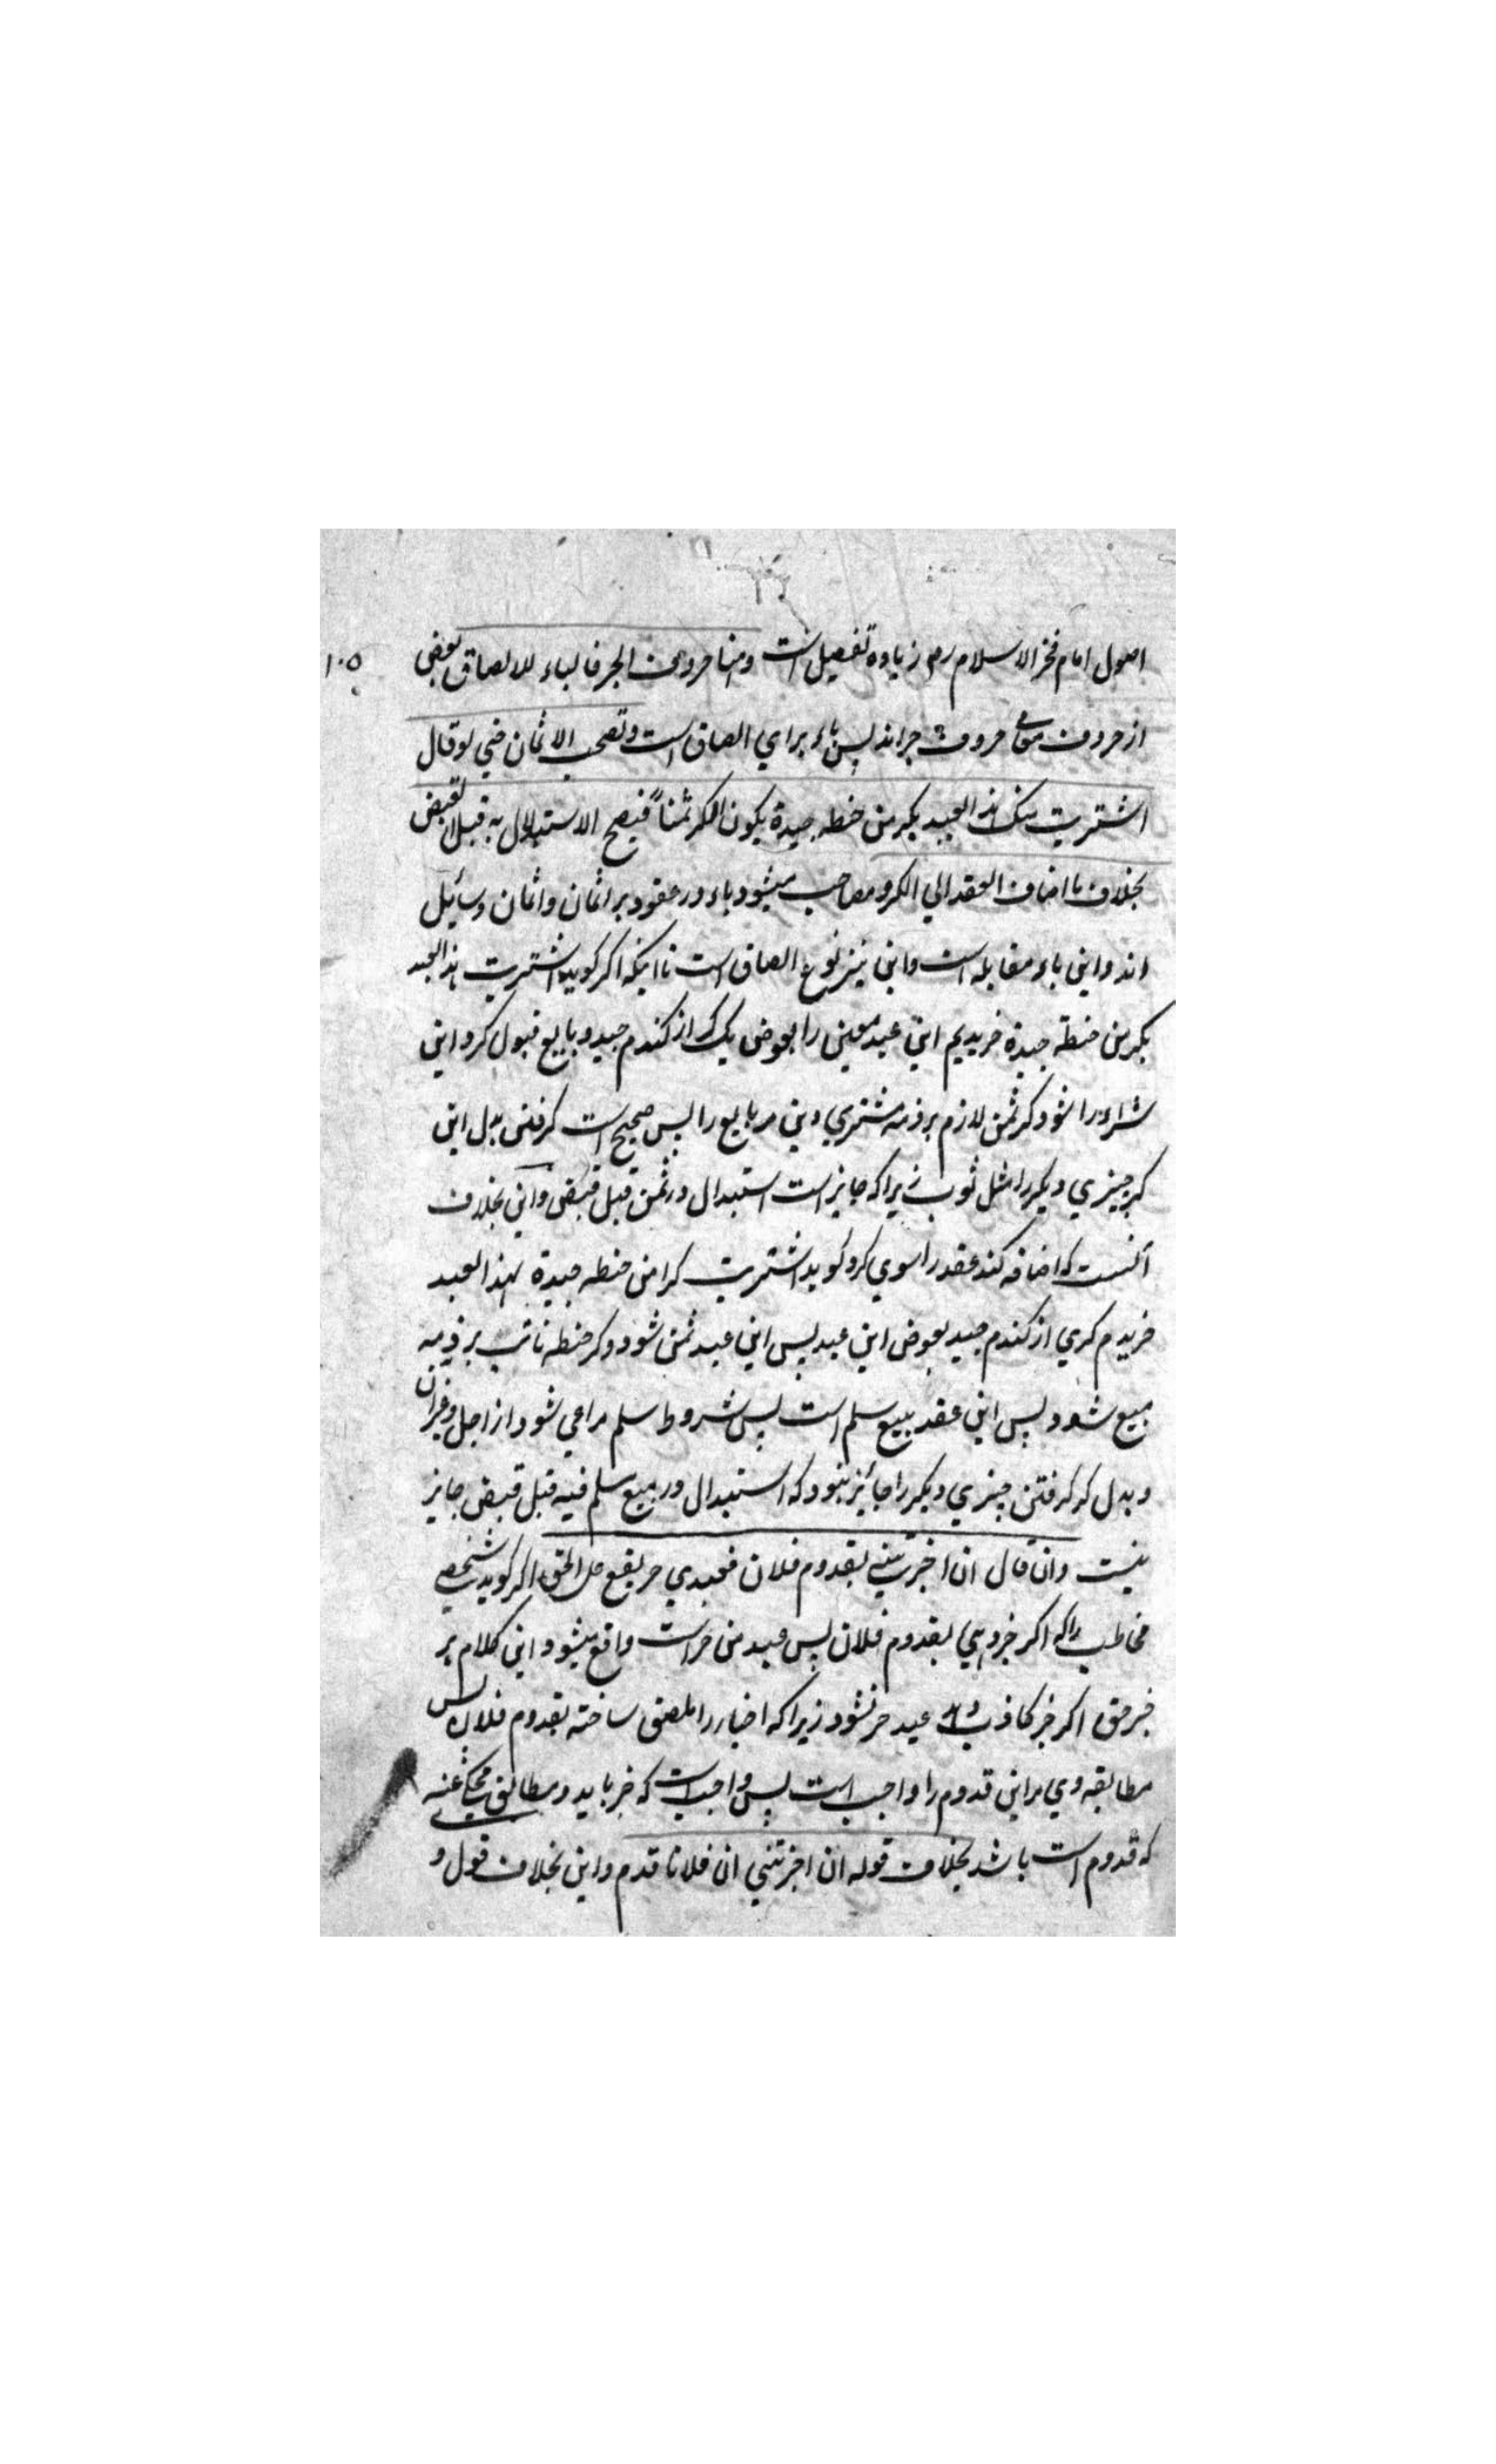 اصول امام فخر الاسلام رح زیاده تفصیل است ومنها حروف الجر فالباء للالصاق بعضی ۱۰۵
از حروف معانی حروف جر اند پس باء برای الصاق است وتصحب الاثمان فی لو قال
اشتریت منک هذا العبد بکر من حنطه جیدة یکون الکر ثمناً فیصح الاستبدال به قبل القبض
بخلاف ما اضاف العقد الی الکر و مصاحب میشود باء در عقود بر اثمان واثمان وسائل
اند واین باء مقابله است واین نیز نوع الصاق است تا اینکه اگر کوید اشتریت هذا العبد
بکر من حنطة جیدة خریدیم این عبد معین را بعوض یک کر از کندم جید و بایع قبول کرد این
شراء را شود کر ثمن لازم بر ذمه مشتری دین مر بایع را پس صحیح است کرفتن بدل این
کر چیزی دیکر را مثل ثوب زیرا که جایز است استبدال در ثمن قبل قبض واین بخلاف
آنست که اضافه کند عقد را سوی کر و کوید اشتریت کرا من حنطه جیدة بهذا العبد
خریدم کری از کندم جید بعوض این عبد پس این عبد ثمن شود و کر حنطه ثابت بر ذمه
مبیع شود پس این عقد بیع سلم است پس شروط سلم مراعی شود از اجل وغیر آن
و بدل کر کرفتن چیزی دیکر را جائز نبود که استبدال در مبیع سلم فیه قبل قبض جایز
نیست وان قال ان اخبرتنی بقدوم فلان فعبدی حر یقع علی الحق اکر کوید شخصی
مخاطب را که اکر خبر دهی بقدوم فلان پس عبد من حر است واقع میشود این کلام بر
خبر حق اکر خبر کاذب داد عبد حر نشود زیرا که اخبار را ملصق ساخته بقدوم فلان پس
مطابقه وی مر این قدوم را واجب است پس واجب است که خبر باید و مطابق محکی عنه
که قدوم است باشد بخلاف قوله ان اخبرتنی ان فلانا قدم واین بخلاف قول و